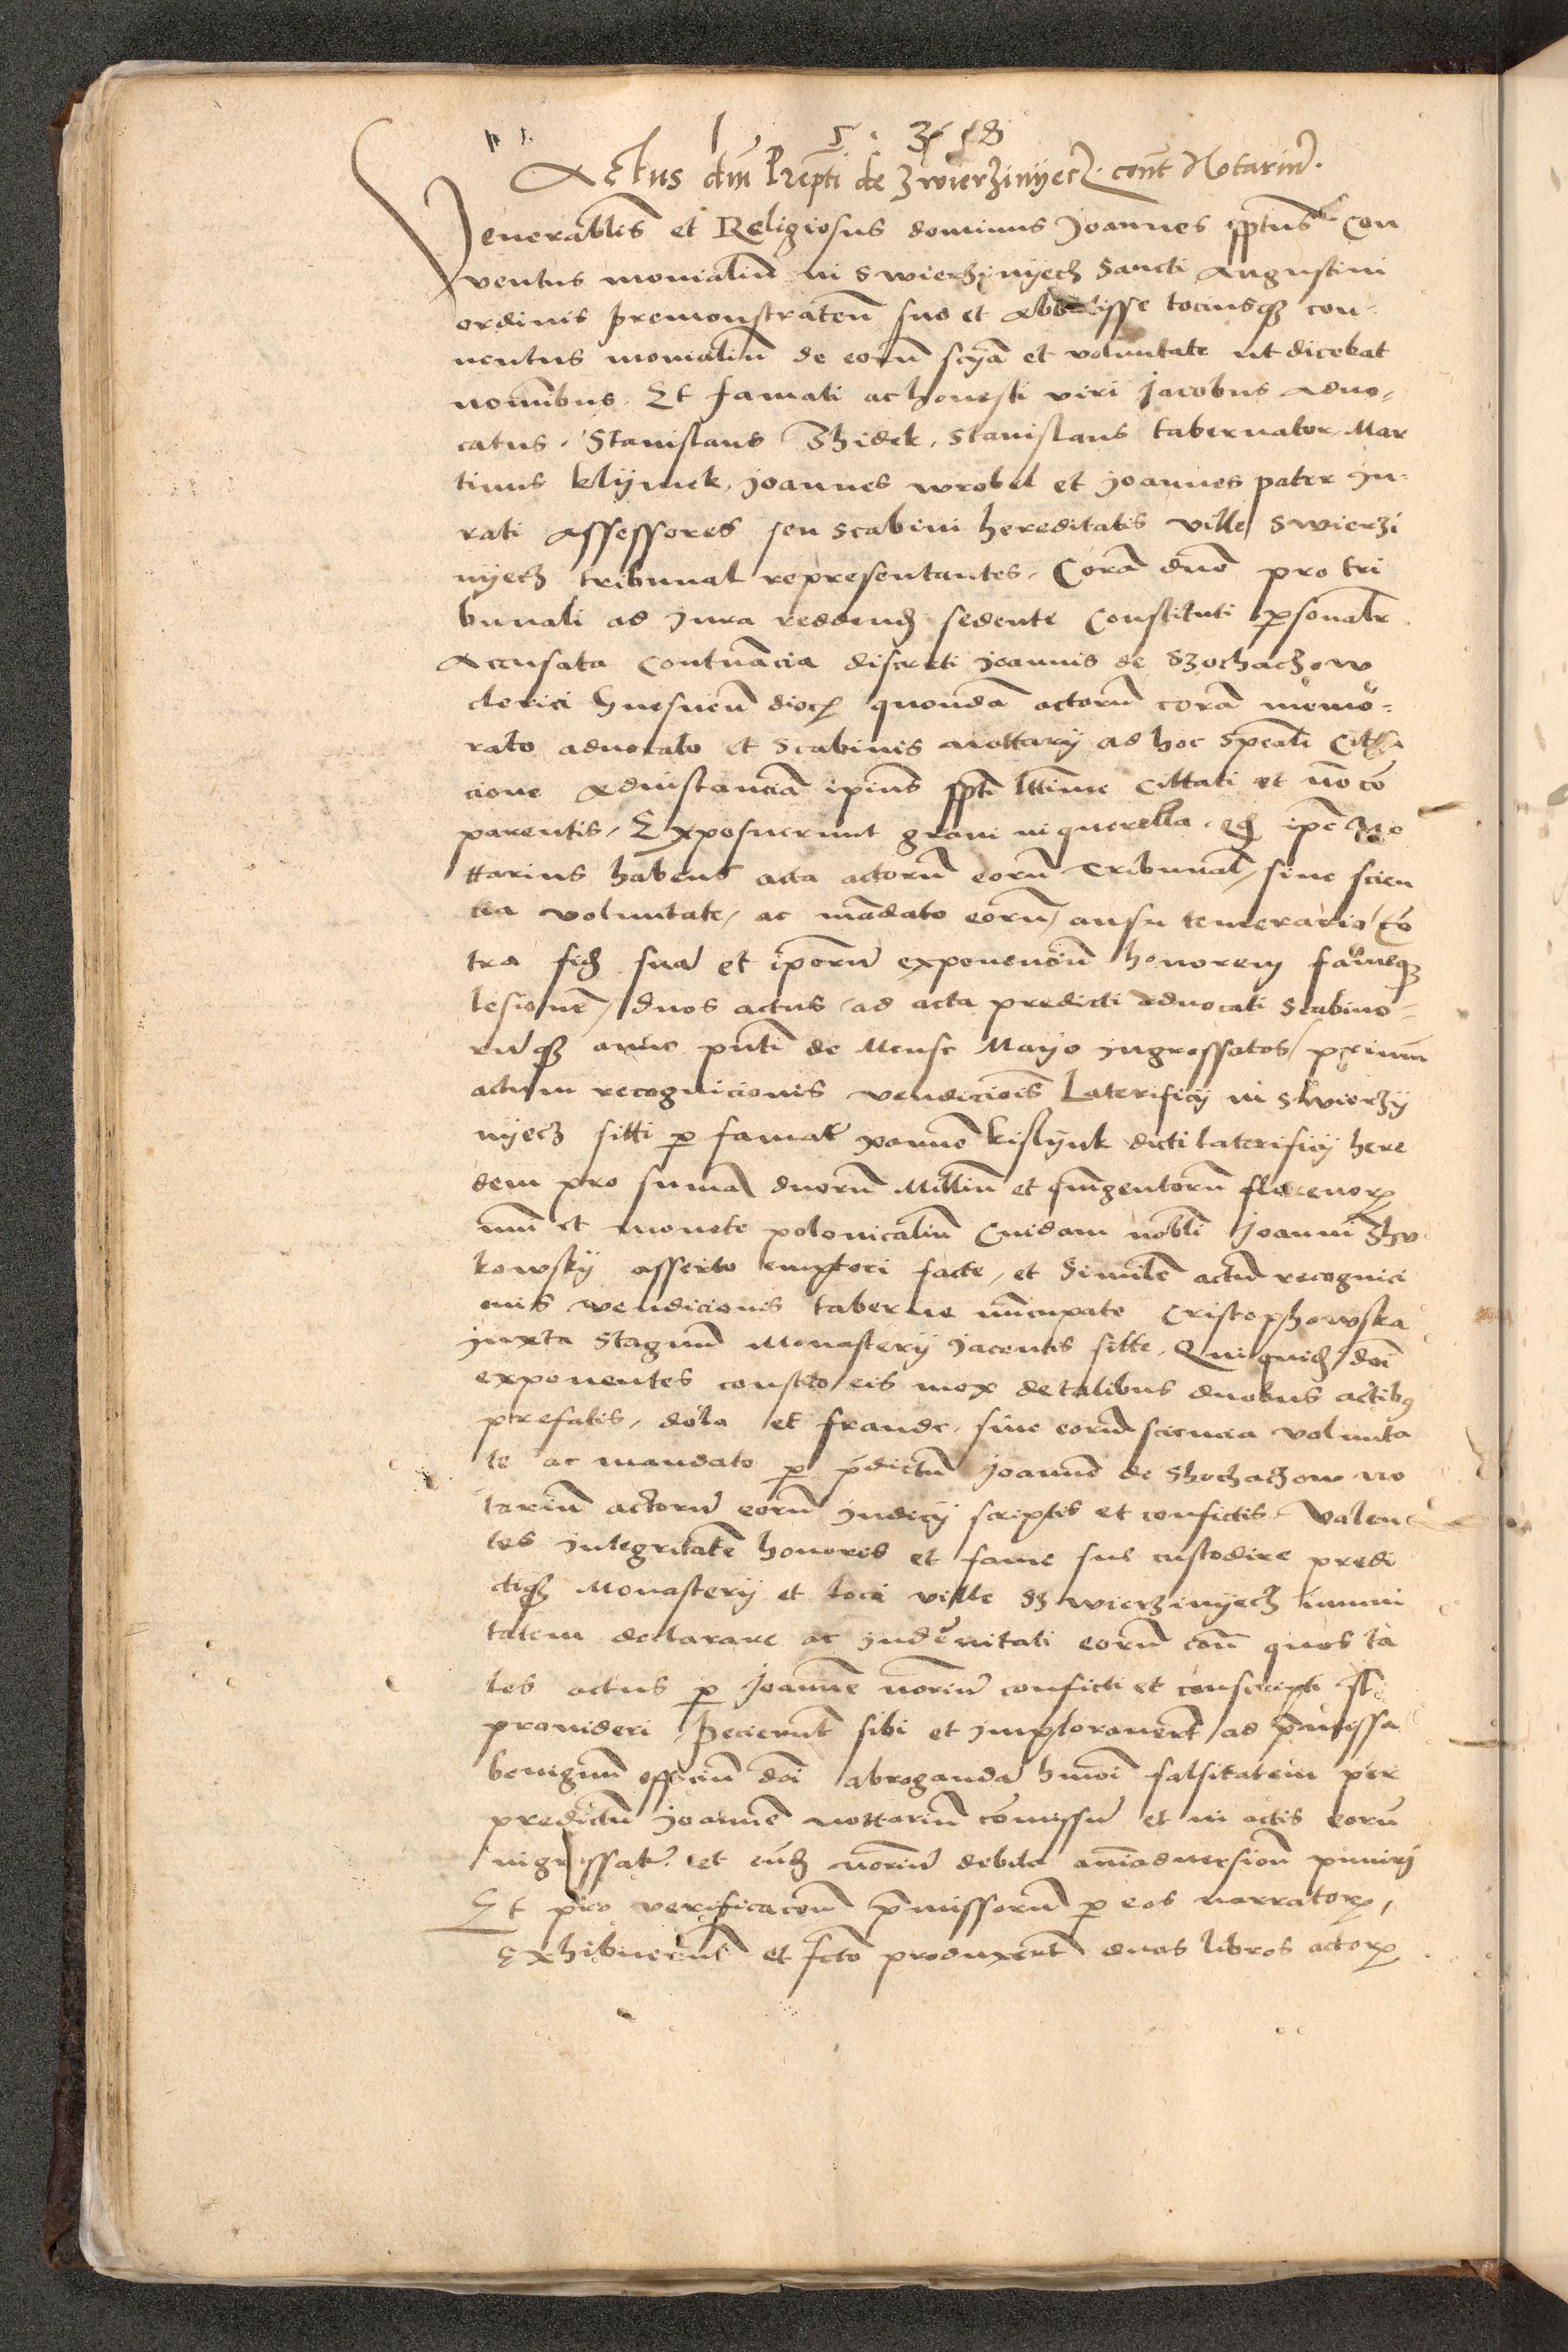 Actus dm̃ Prepti de Zwierzinyecz cont Notariũ.
Venerablis et Religiosus dominus Joannes pptus Con
ventus monialiũ in Swierzinyecz Sancti Augustini
ordinis premonstrateñ suo et Abbatisse tociusqz con-
ventus monialiũ de eorũ scyã et voluntate ut dicebat
nomibus Et famati ac honesti viri Jacobus advo-
catus, Stanislaus Zhidek, Stanislaus tabernator, Mar
tinus klymek, Joannes wrobel et Joannes pater Ju-
rati Assessores seu scabini hereditatis ville Swierzi
nyecz tribunal representantes, Corã dño pro tri
bunali ad Jura reddenđ sedente Constituti psonalr
Accusata Contumacia discreti Joannis de Szochaczow
clerici Gnesneñ dioc quondã actorũ corã memo-
rato advocato et scabinis nottarij ad hoc speali Citta
cione Adinstanciã ipius ppti lttime cittati et nõ cõ
parentis, Exposuerunt gravi in querella, qđ ipe No
ttarius habens acta actorũ eorũ Tribunal, sine scien
cia voluntate, ac mãdato eorũ, ausu temerario Cõ
tra fiđ suã et ipõrũ exponenciũ honorem fameqz
lesionẽ, duos actus ad acta predicti advocati scabino-
rũqz anno pñti de Mense Mayo ingrossatos, primũ
actum recognicionis vendiciõis Laterificij in Swierzy
nyecz sitti p famatũ Joannẽ kislynk dicti laterificij here
dem pro sumã duorũ Milliũ et quingentorũ florenorũ
nũi et monete polonicaliũ Cuidam nobli Joanni Zhu
kowsky asserto emptori facte, et Similẽ actũ recognici
onis vendicionis taberne nũcupate Cristophowska
juxta stagnũ Monasterij jacentis sitte, Qui quiđ dñi
exponentes constito eis mox detalibus duobus actibus
prefatis, dolo et fraude, sine eorũ sciencia volunta
te ac mandato p pdictũ Joannẽ de Shochaczow no
tariũ actorũ eorũ judicij scriptis et confictis, Valen
tes integritatẽ honoris et fame sue custodire predi
ctiqz Monasterij et loci ville Szwierzinyecz immni
tatem declarare ac indẽnitati eorũ coñ quos ta
les actus p Joannẽ noriũ conficti et conscripti st
provideri Pecierũt sibi et imploraverũt ad pmissa
benignũ officiũ dñi abrogandã hmõi falsitatem per
predictũ Joannẽ nottariũ cõmissũ et in actis eorũ
ingrossatũ et eũđ noriũ debita animadversioñ puniri
Et pro verificacoñ pmissorũ p eos narratorũ,
Exhibuerũt et fcto produxerũt duos libros actorũ